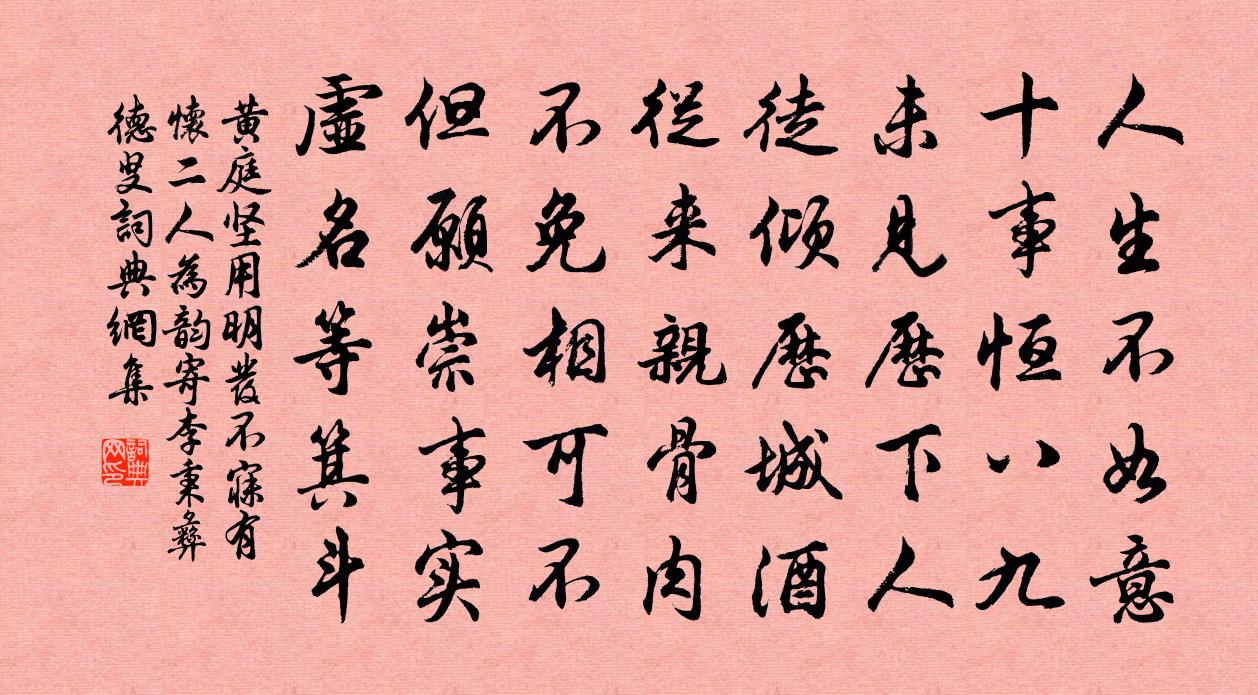 人生不如意
十事恒八九
未見歷下人
徒倾歷城酒
從来親骨肉
不免相可不
但願崇事实
虚名等箕斗
黄庭坚用明發不寐有
懷二人為韵寄李秉彝
德叟詞典網集
詞典网印